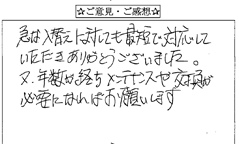 ☆ご意見・ご感想☆
急な入替えに対しても最短で対応して
いただきありがとうございました。
又、年数が経ちメンテナンスや交換が
必要になればお願いします